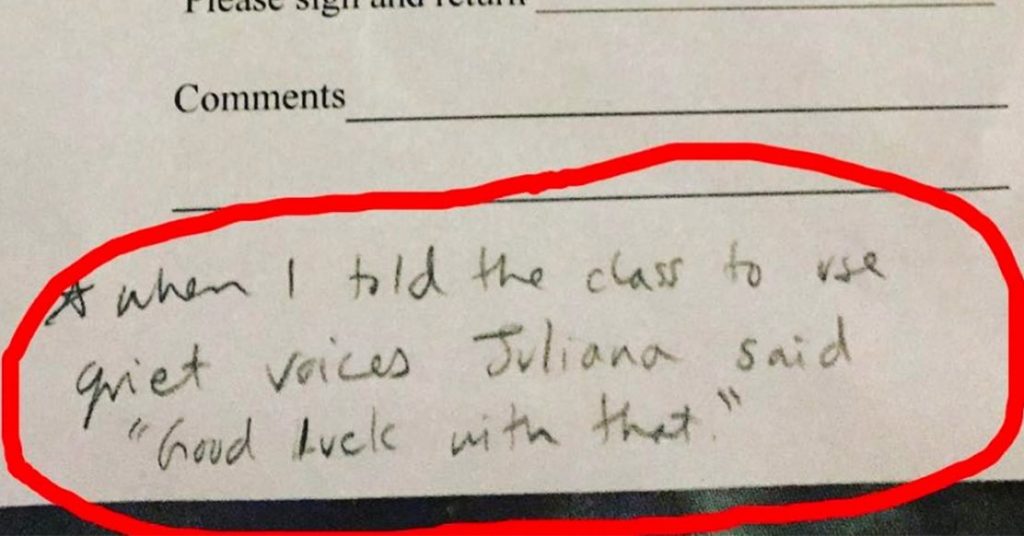 Please sign and return
Comments
☆ when I told the class to use
quiet voices Juliana said
"Good luck with that."